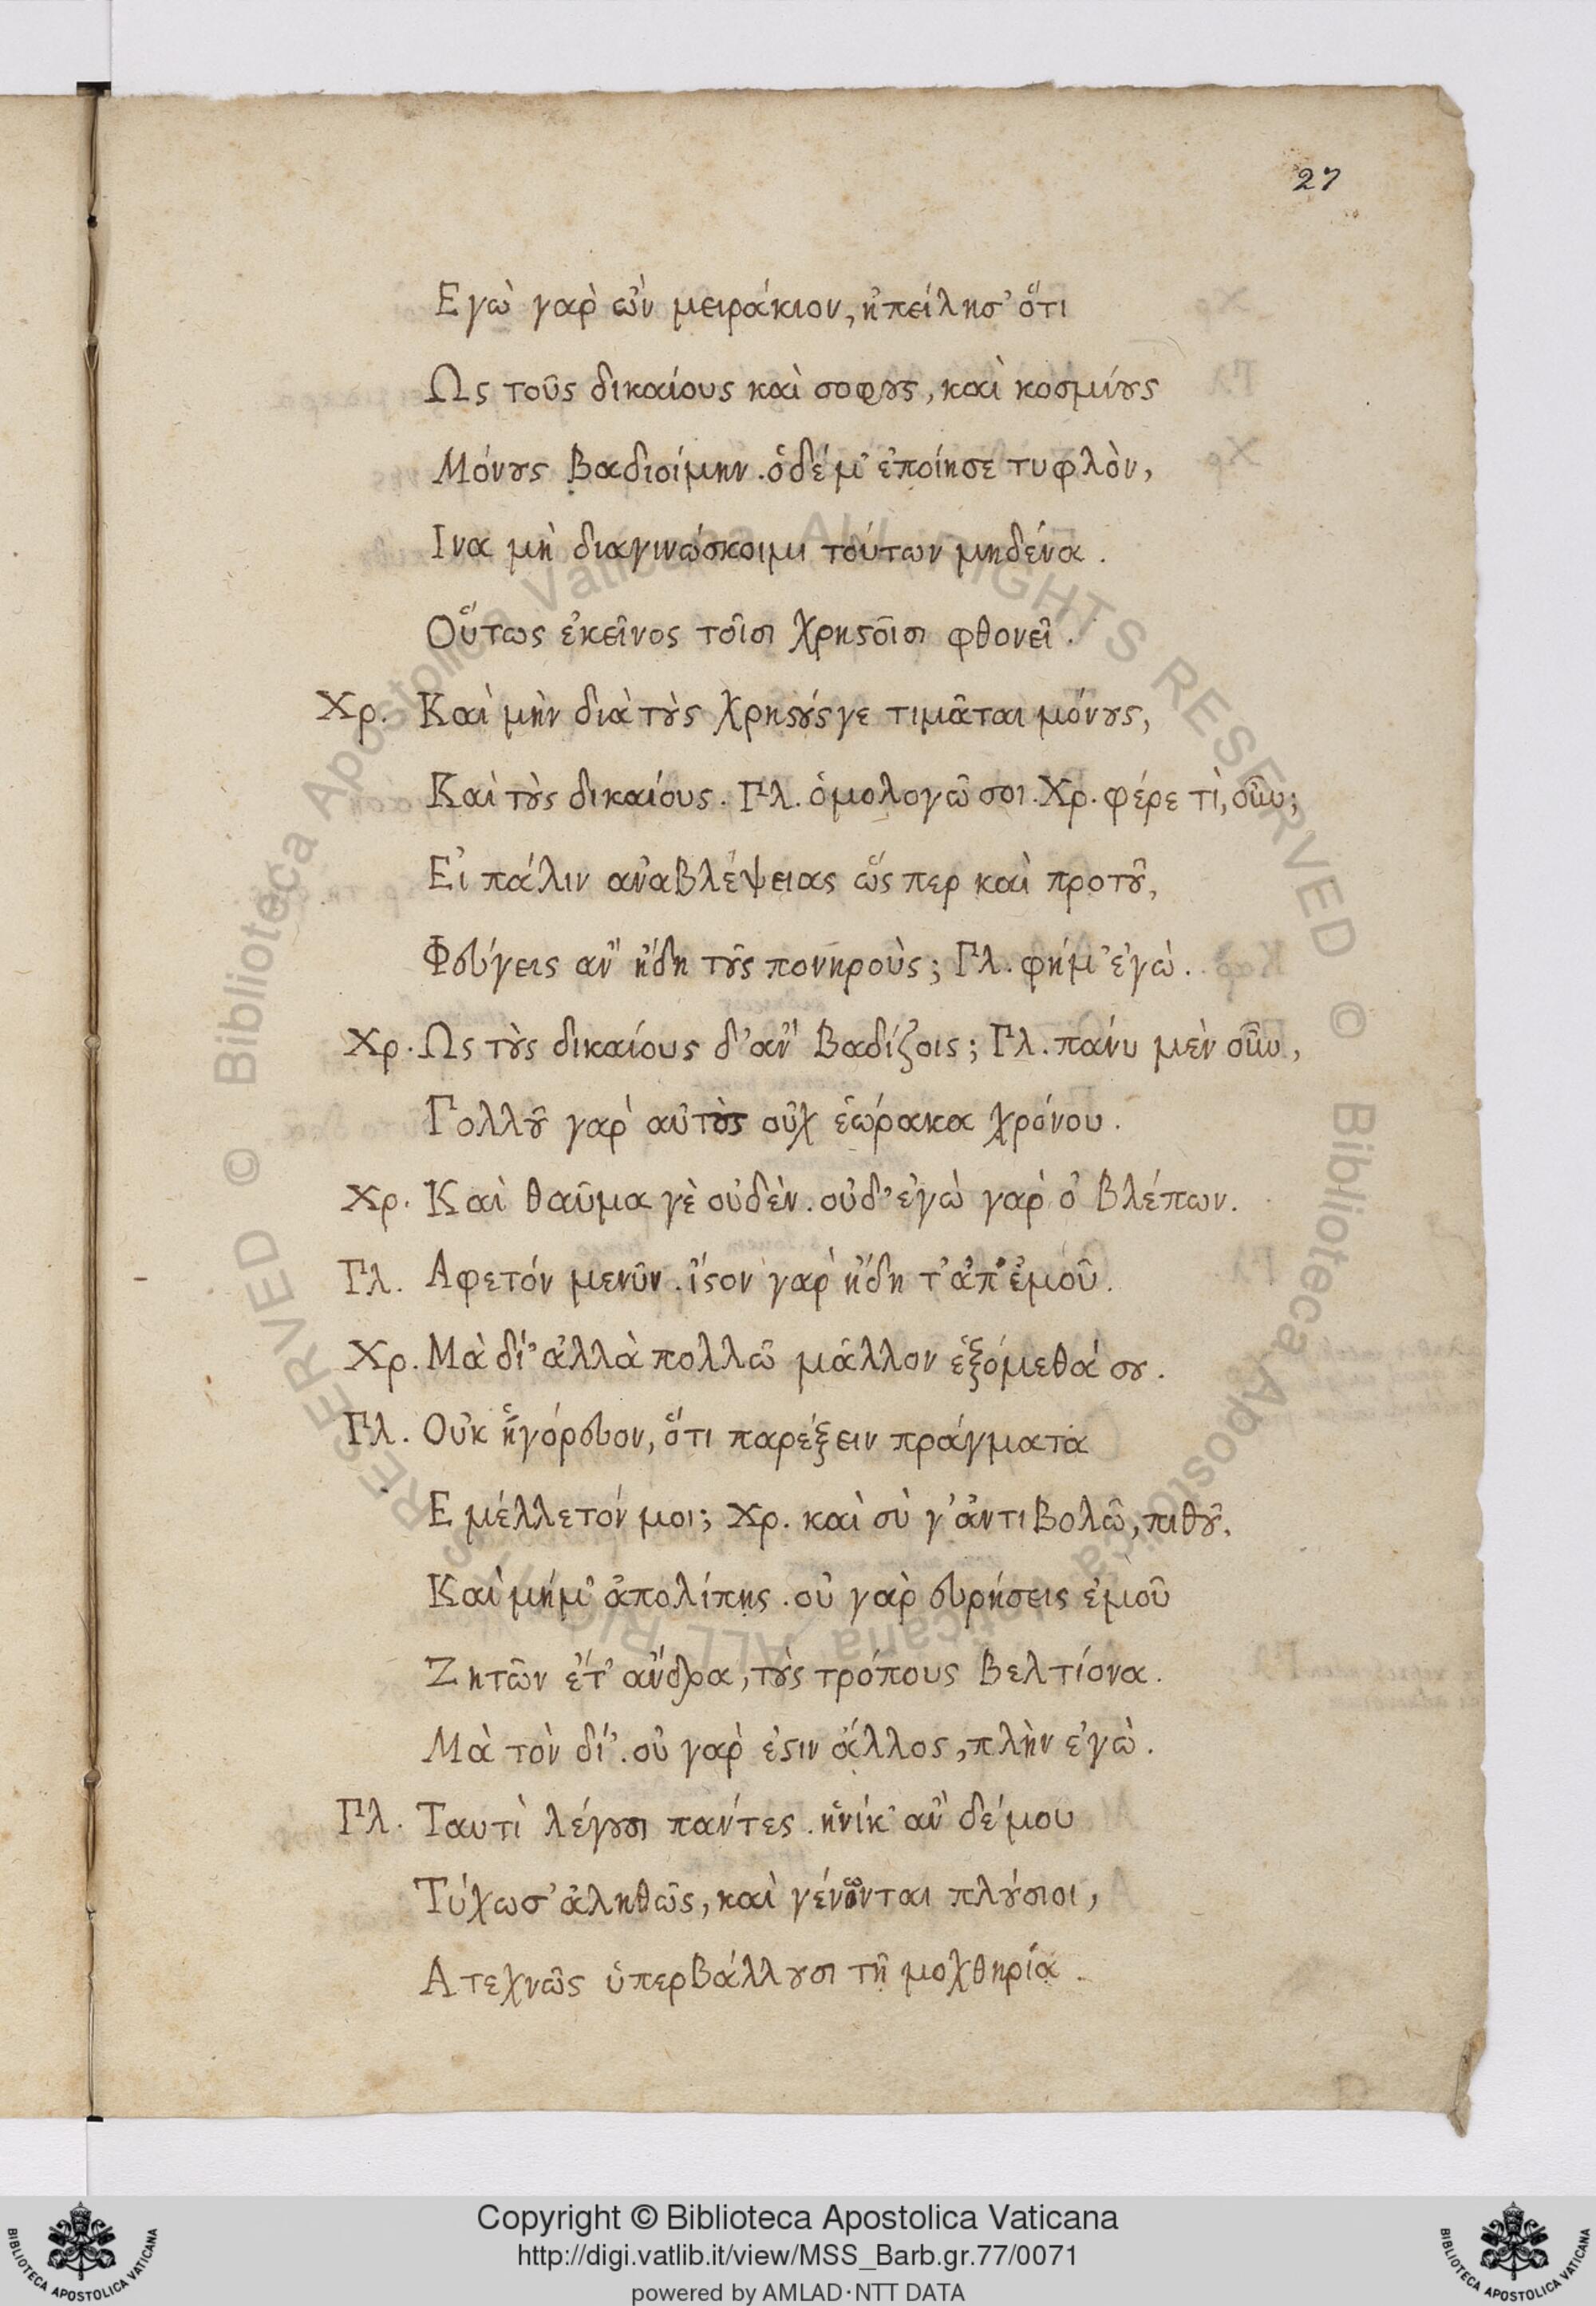 27
Εγὼ γαρ ὢν μειράκιον, ἠπείλησ' ὅτι
Ως τοῦς δικαίους καὶ σοφȣς, καὶ κοσμίȣς
Μόνȣς βαδιοίμην. ὁδέμ' ἐποίησε τυφλὸν,
Ινα μὴ διαγινώσκοιμι τούτων μηδένα.
Οὕτως ἐκεῖνος τοῖσι χρηϛοῖσι φθονεῖ.
Χρ. Καὶ μὴν διὰ τȣ̀ς χρηϛȣ́ς γε τιμᾶται μόνȣς,
Καὶ τȣ̀ς δικαίους. Πλ. ὁμολογῶ σοι. Χρ. φέρε τὶ, οὖν;
Εἰ πάλιν ἀναβλέψειας ὥς περ καὶ προτȣ͂,
Φεύγεις ἂν ἤδη τȣ͂ς πονηροὺς; Πλ. φήμ' ἐγὼ.
Χρ. Ως τȣ̀ς δικαίους δ' ἂν βαδίζοις; Πλ. πάνυ μὲν οὖν,
Πολλȣ͂ γαρ αὐτȣ̀ς οὐχ ἑώρακα χρόνου.
Χρ. Καὶ θαῦμα γὲ οὐδὲν. οὐδ' ἐγὼ γαρ ὁ βλέπων.
Πλ. Αφετόν μενῦν. ἴϛον γαρ ἤδη τ' ἀπ' ἐμοῦ.
Χρ. Μὰ δί' ἀλλὰ πολλῶ μᾶλλον ἑξόμεθά σȣ.
Πλ. Οὐκ ἠγόρευον, ὅτι παρέξειν πράγματα
Εμέλλετόν μοι; Χρ. καὶ σὺ γ' ἀντιβολῶ, πιθȣ͂,
Καὶ μήμ' ἀπολίπης. οὐ γαρ εὑρήσεις ἐμοῦ
Ζητῶν ἔτ' ἄνδρα, τȣ̀ς τρόπους βελτίονα.
Μὰ τὸν δί'. οὐ γαρ ἐϛιν ἄλλος, πλὴν ἐγὼ.
Πλ. Ταυτὶ λέγȣσι παντες. ἡνίκ' ἂν δέμου
Τύχωσ' ἀληθῶς, καὶ γένωνται πλȣ́σιοι,
Ατεχνῶς ὑπερβάλλȣσι τῆ μοχθηρία.
Copyright © Biblioteca Apostolica Vaticana
http://digi.vatlib.it/view/MSS_Barb.gr.77/0071
powered by AMLAD·NTT DATA